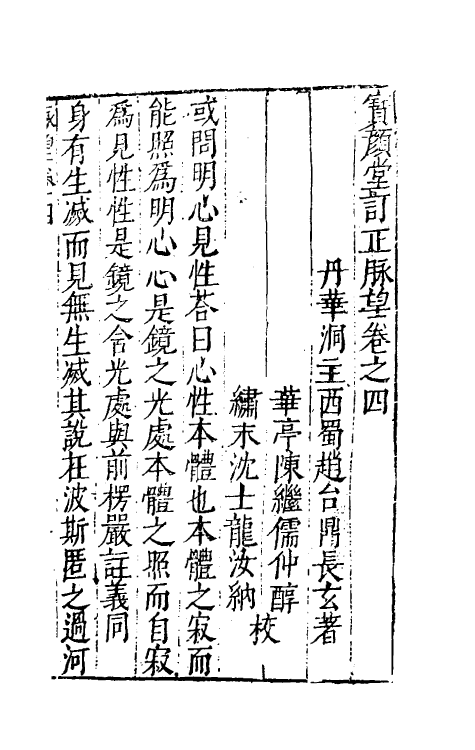 寶顏堂訂正脉望卷之四
丹華洞主西蜀趙台鼎長玄著
華亭陳繼儒仲醇
繡水沈士龍汝納
校
或問明心見性荅曰心性本體也本體之寂而
能照爲明心心是鏡之光處本體之照而自寂
爲見性性是鏡之含光處與前楞嚴註義同
身有生滅而見無生滅其說在波斯匿之過河
脉望卷四